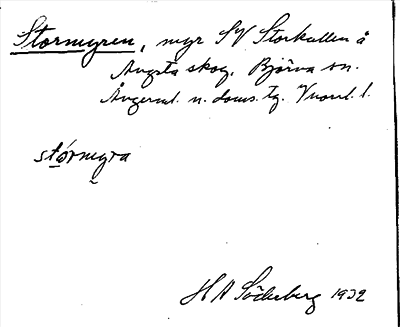 Stormyren, myr SV Storkullen å
Ångsta skog, Björna sn.
Ångerml. n. doms. tg. Vnorrl. l.
stórmyra
H A Söderberg 1932